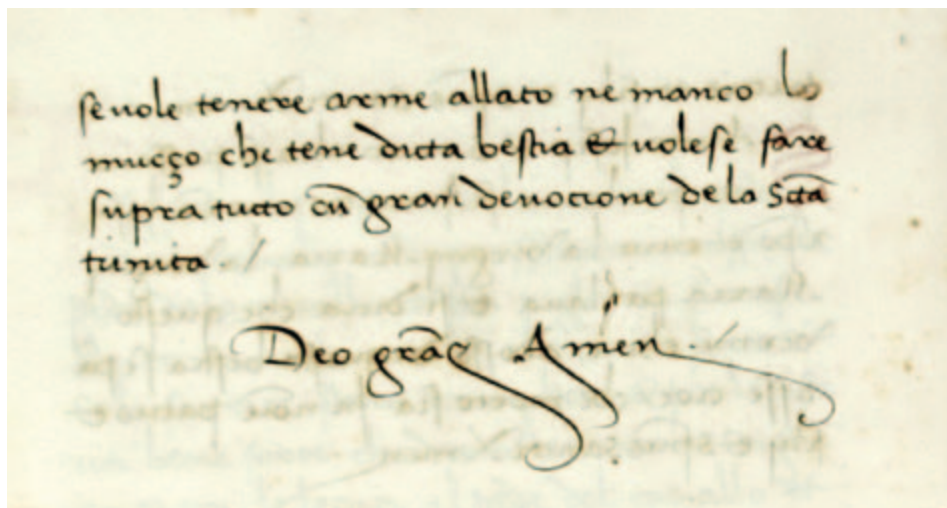 se vole tenere arme allato ne manco lo
mucço che tene dicta bestia & volese fare
supra tucto cū gran devocione de la Sctā
trinita . /
Deo grās Amen . /